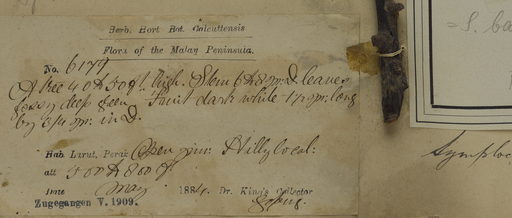 Herb. Hort. Bot. Calcuttensis
Flora of the Malay Peninsula.
No. 6179
A tree 40 to 50 ft. high. Stem 6 to 8 in. D. leaves
glossy deep green. Fruit dark white 1 1/2 in. long
by 3/4 in. in D.
Hab Larut, Perak Open jun. Hilly local.
alt 500 to 800 ft
Date May 1884. Dr. King's Collector
Zugegangen V. 1909.
=S. ba
Symploc